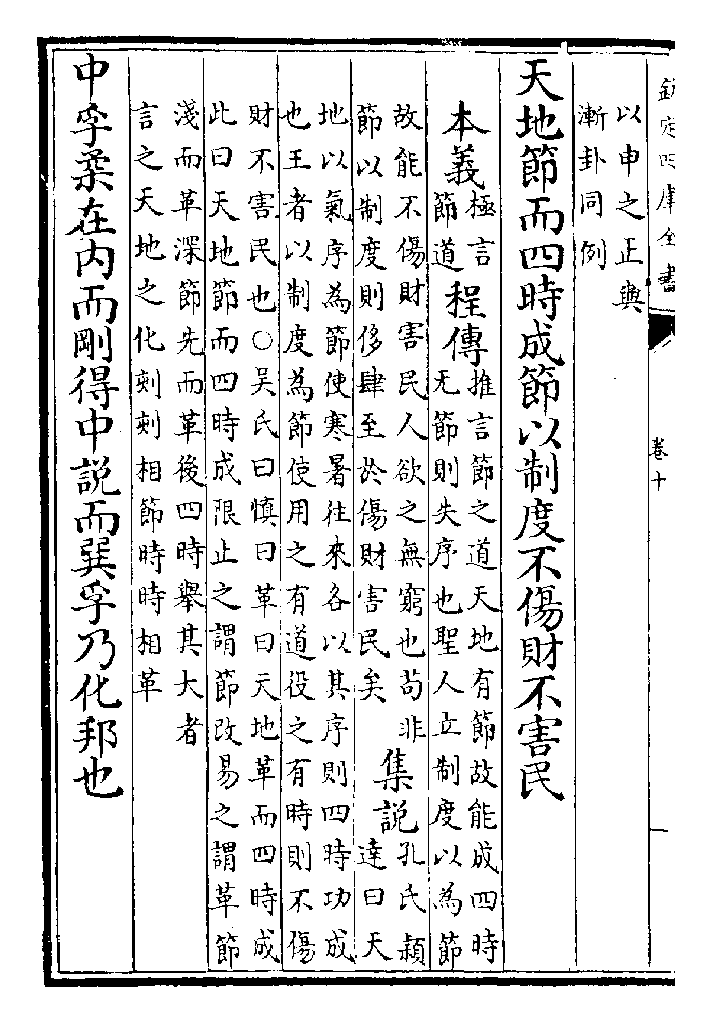 欽定四庫全書
卷十
一
以申之正與
漸卦同例
天地節而四時成節以制度不傷財不害民
本義
極言
節道
程傳
推言節之道天地有節故能成四時
无節則失序也聖人立制度以為節
故能不傷財害民人欲之無窮也苟非
節以制度則侈肆至於傷財害民矣
集說
孔氏穎
達曰天
地以氣序為節使寒暑往來各以其序則四時功成
也王者以制度為節使用之有道役之有時則不傷
財不害民也○吳氏曰慎曰革曰天地革而四時成
此曰天地節而四時成限止之謂節改易之謂革節
淺而革深節先而革後四時舉其大者
言之天地之化刻刻相節時時相革
中孚柔在内而剛得中說而巽孚乃化邦也